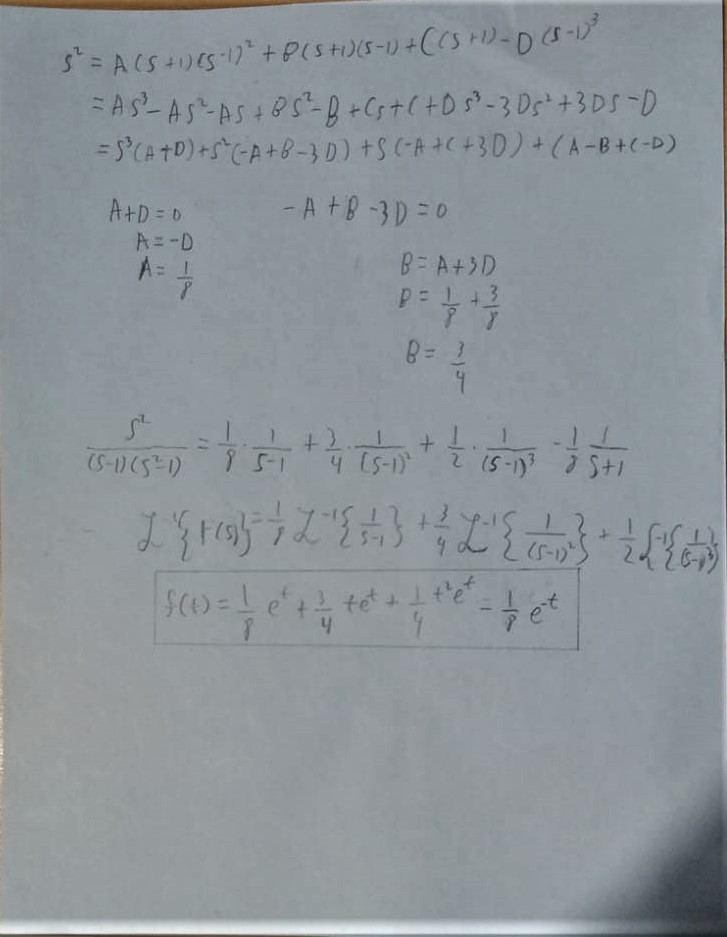 s² = A(s+1)(s-1)² + B(s+1)(s-1) + C(s+1) - D(s-1)³
= As³ - As² - As + Bs² - B + Cs + C + Ds³ - 3Ds² + 3Ds - D
= s³(A+D) + s²(-A+B-3D) + s(-A+C+3D) + (A-B+C-D)
A+D = 0 -A+B-3D = 0
A = -D
A = 1/8 B = A+3D
B = 1/8 + 3/8
B = 3/4
s²/((s-1)(s²-1)) = 1/8 · 1/(s-1) + 3/4 · 1/(s-1)² + 1/2 · 1/(s-1)³ - 1/8 1/(s+1)
ℒ⁻¹{F(s)} = 1/8 ℒ⁻¹{1/(s-1)} + 3/4 ℒ⁻¹{1/(s-1)²} + 1/2 ℒ⁻¹{1/(s-1)³}
f(t) = 1/8 e^t + 3/4 te^t + 1/4 t²e^t = 1/8 e^-t